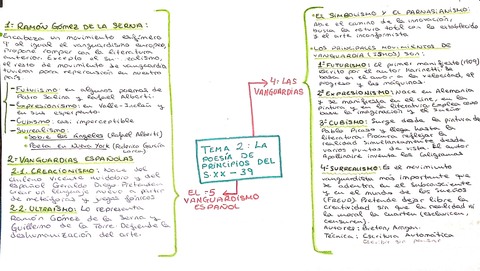 1- Ramón Gómez de la Serna:
Encabeza un movimiento efímero
y al igual el vanguardismo europeo,
propone romper con la literatura
anterior. Excepto el surrealismo,
el resto de movimiento de vanguardia
tuvieron poca repercusión en nuestro
país
- Futurismo: en algunos poemas de
Pedro Salina y Rafael Alberti.
- Expresionismo: en Valle-Inclán y
en sus esperpento.
- Cubismo: casi imperceptible
- Surrealismo:
Sobre los Ángeles (Rafael Alberti)
Poeta en Nueva York (Federico García
Lorca)
2- Vanguardias españolas
2.1. Creacionismo: Nace del
chileno Vicente Huidobro y del
español Gerardo Diego. Pretenden
crear un lenguaje nuevo a partir
de metáforas y juegos fónicos
2.2. Ultraísmo: Lo representa
Ramón Gómez de la Serna y
Guillermo de la Torre. Defiende la
deshumanización del arte.
Tema 2: La
poesía de
principios del
S.XX - 39
4: Las
vanguardias
El -5
vanguardismo
español
• El simbolismo y el parnasianismo:
Abre el camino de la innovación,
busca la rotura total con lo establecido
y el arte inconformista
• Los principales movimientos de
vanguardia (ismos) son:
1- Futurismo: el primer manifiesto (1909)
escrito por el autor Marinetti. Se
basa en el amor a la velocidad, el
progreso y las máquinas.
2- Expresionismo: Nace en Alemania
y se manifiesta en el cine, en la
pintura y en la literatura. Emplea como
base la imaginación y el sueño
3- Cubismo: Surge desde la pintura de
Pablo Picaso y llega hasta la
literatura. Procura reflejar la
realidad simultaneamente desde
varios puntos de vista. El autor
Apollinaire inventa los caligramas
4- Surrealismo: Es el movimiento
vanguardista más importante que
se adentra en el Subconsciente
y en el mundo de los sueños
(Freud) Pretende dejar libre la
creatividad sin que la realidad ni
la moral la coarten
Autores: Breton, Aragon.
Técnica: Escritura Automática
Escribir sin pensar